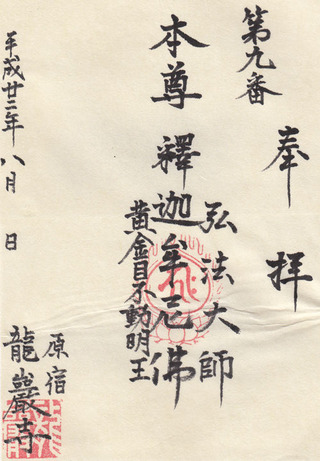 奉拝
第九番
弘法大師
本尊釋迦牟尼佛
黄金目不動明王
原宿
龍巖寺
平成廿二年八月 日